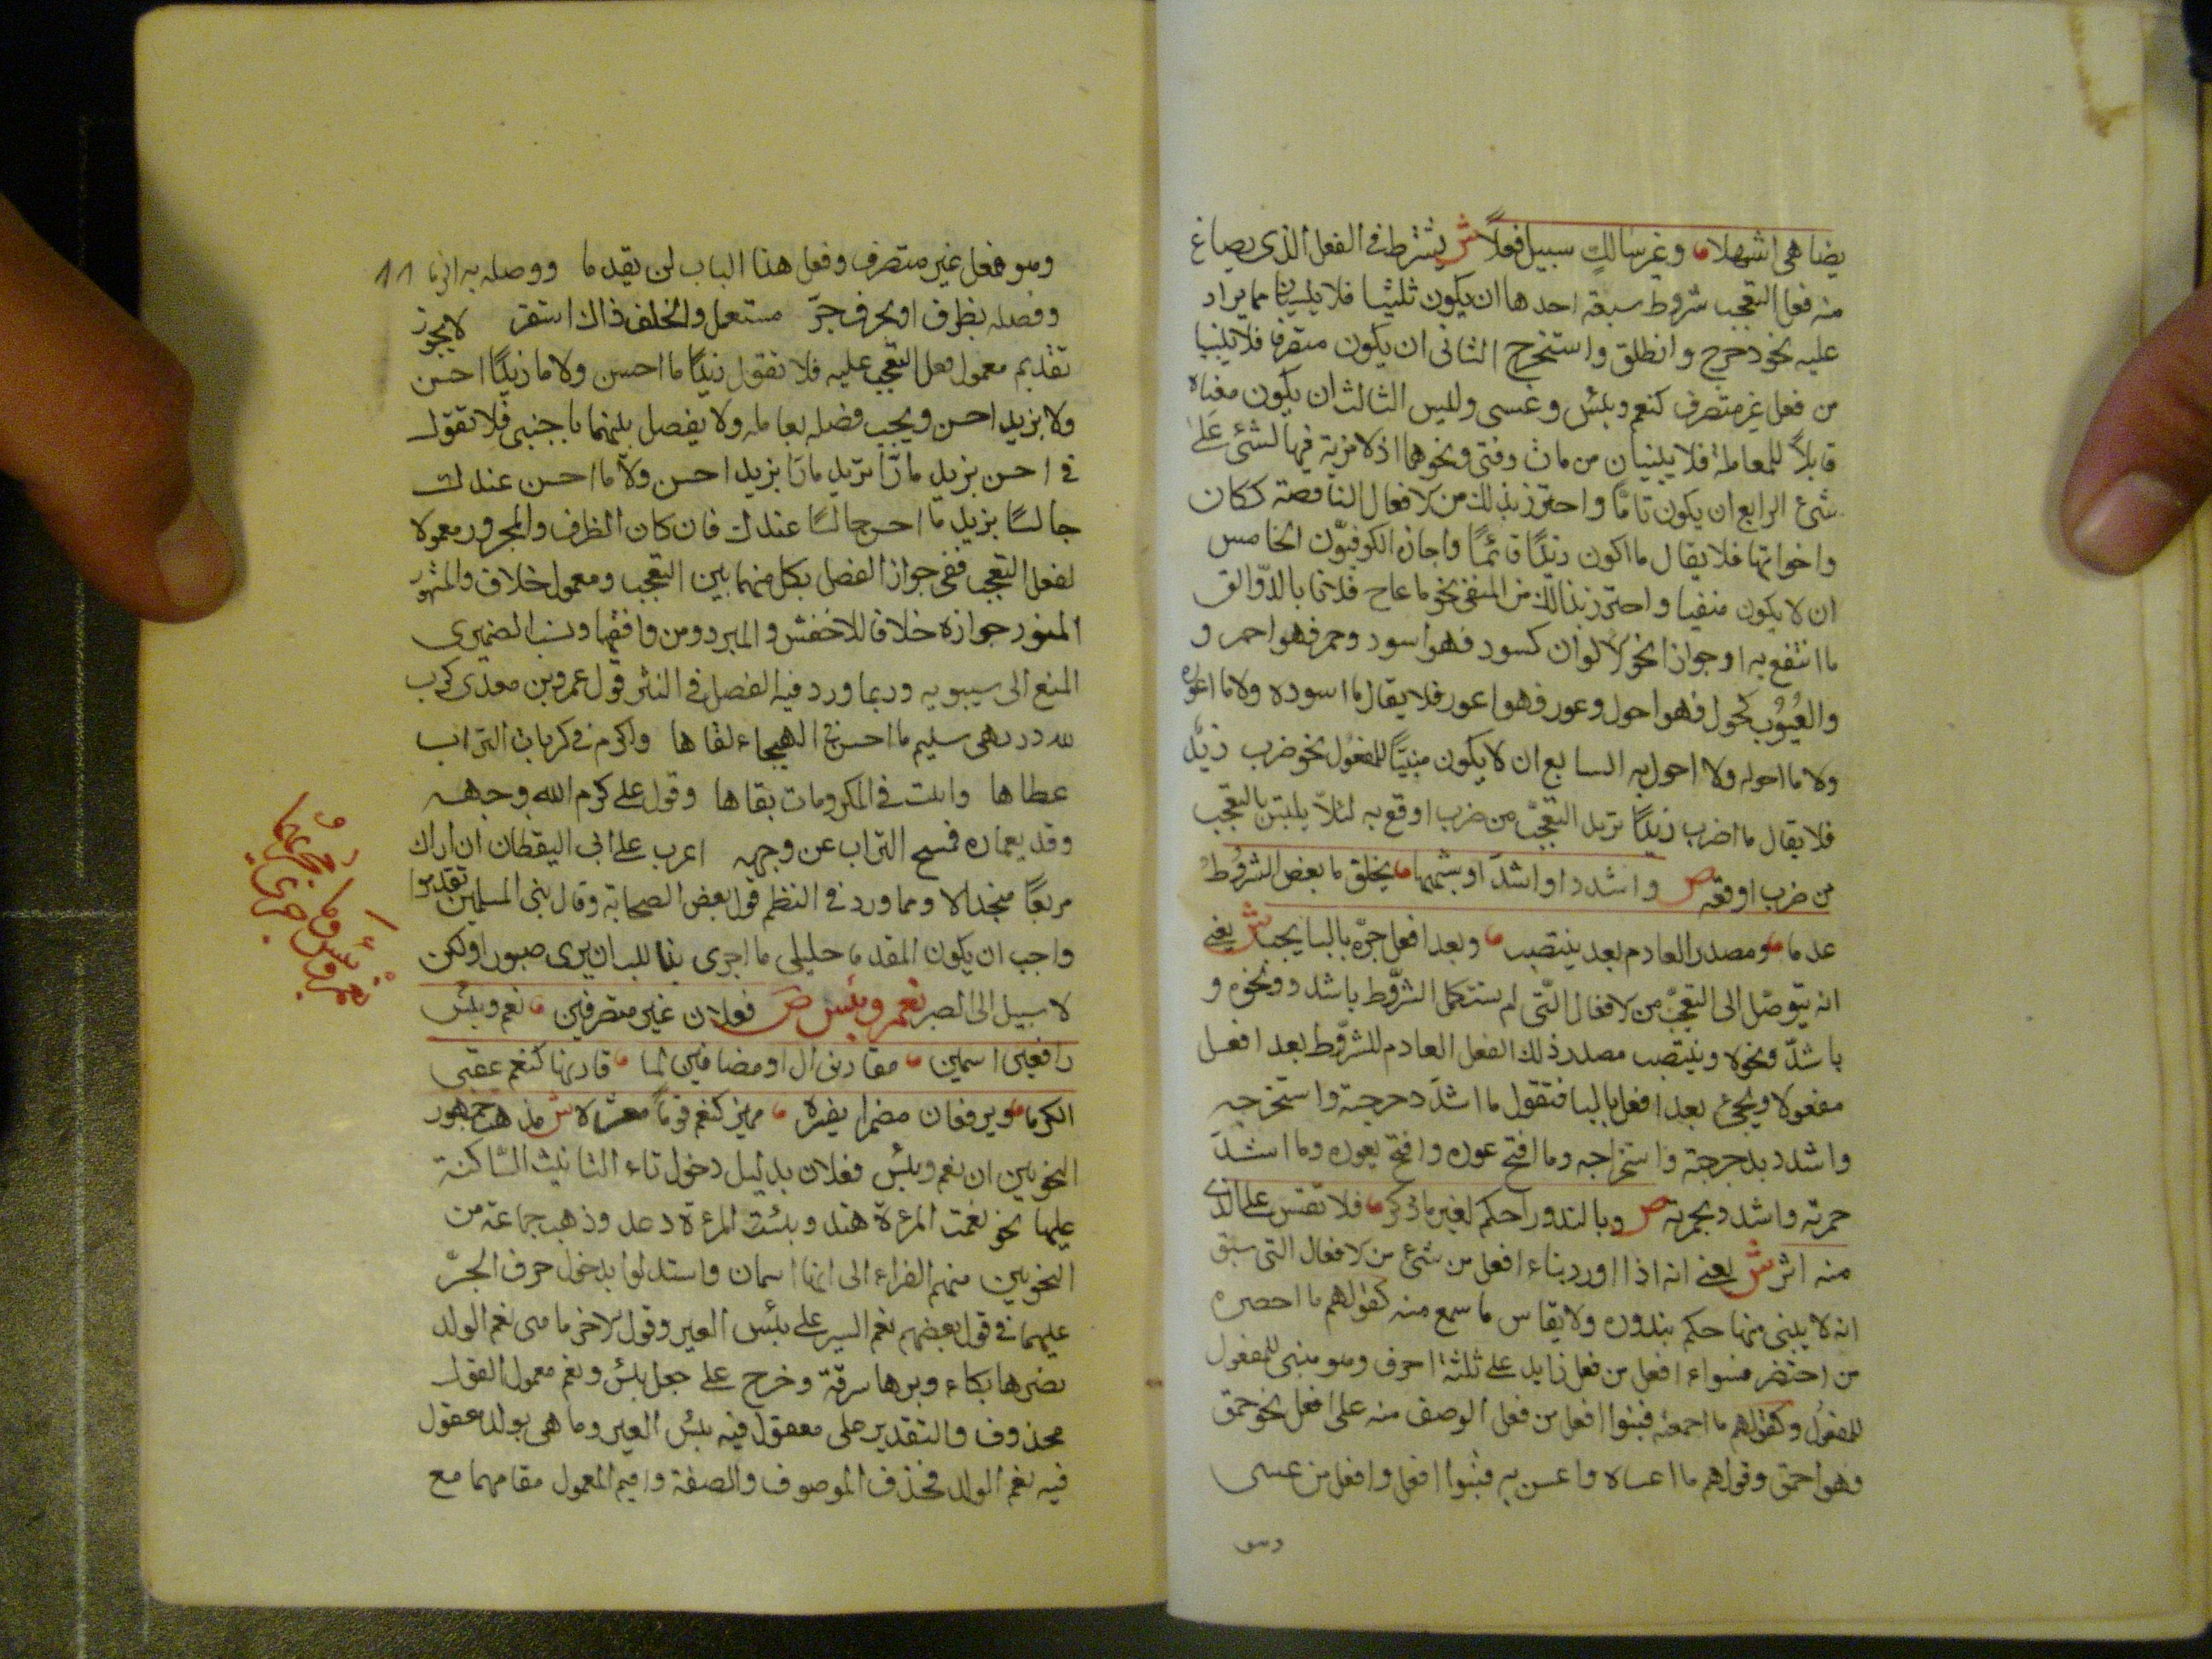 يضاهى اشهلا وغير سالك سبيل فعلا ش يشترط فى الفعل الذى يصاغ
منه فعل التعجب شروط سبعة احدها ان يكون ثلثيا فلا يبنيان مما يراد
عليه نحو دحرج وانطلق واستخرج الثانى ان يكون متصرفا فلا يبنيا
من فعل غير متصرف كنعم وبئس وعسى وليس الثالث ان يكون معناه
قابلاً للمعاملة فلا يبنيان من مات وفنى ونحوهما اذ لا مزية فيها لشئ على
شئ الرابع ان يكون تامّا واحترز بذلك من الافعال الناقصة ككان
واخواتها فلا يقال ما اكون زيدًا قائمًا واجازه الكوفيّون الخامس
ان لا يكون منفيا واحترز بذالك من المنفى نحو ما عاج فلان بالدّوا الى
ما انتفع به او جوازا نحو الالوان كسود فهو اسود وحمر فهو احمر و
والعُيُوب كحول فهو احول وعور فهو اعور فلا يقال ما اسوده ولا ما اعوره
ولا ما احوله ولا احول به السابع ان لا يكون مبنيّا للمفعول نحو ضرب زيد
فلا يقال ما اضرب زيدًا تريد التعجّب من ضرب اوقع به لئلاّ يلبتس بالتعجب
من ضرب اوقعه ص واشدد او اشدّ او شبههما يخلف ما بعض الشروط
عدما ومصدر العادم بعد ينتصب وبعد افعل جرّه بالبا يجب ش يعنى
انه يتوصّل الى التعجّب من الافعال الّتى لم تستكمل الشرّوط باشدد ونحوه و
باشدّ ونحوه وينتصب مصدر ذلك الفعل العادم للشرّوط بعد افعل
مفعولا ويجئ بعد افعل بالبا فتقول ما اشدّ دحرجته واستخرجه
واشدد بدحرجته واستخراجه وما اقبح عوره واقبح بعوره وما اشدّ
حمرته واشدد بحمرته ص وبالندور احكم لغير ما ذكر فلا تقس على الذى
منه اثر ش يعنى انه اذا اورد بناء افعل من شئ من الافعال التى سبق
انه لا يبنى منها حكم بندوره ولا يقاس ما سمع منه كقولهم ما اخصره
من اختصر فبنوا افعل من فعل زايد على ثلثة احرف وهو مبنى للمفعول
للمفعول وكقولهم ما احمقه فبنوا افعل من فعل الوصف منه على افعل نحو حمق
فهو احمق وقولهم ما اعساه واعس به فبنوا افعل وافعل من عسى
وهو
وهو فعل غير متصرف وفعل هذا الباب لن يقدما ووصله به الزما ١١
وفصله بظرف او بحرف جرّ مستعمل والخلف ذاك استقر لا يجوز
تقديم معمول فعل التعجب عليه فلا تقول زيدًا ما احسن ولا ما زيدًا احسن
ولا بزيد احسن ويجب فصله بعامله ولا يفصل بينهما باجنبى فلا تقول
فى احسن بزيد مارّا تريد مارّا بزيد احسن ولا ما احسن عندك
جالسًا بزيد ما احسن جالسًا عندك فان كان الظرف والمجرور معمولا
لفعل التعجب ففى جواز الفصل بكل منهما بين التعجب ومعموله خلاف والمشهور
المنصور جوازه خلافا للاخفش والمبرد ومن وافقهما ونسب الضميرى
المنع الى سيبويه وربما ورد فيه الفصل فى النثر قول عمرو بن معدى كرب
لله در بنى سليم ما احسن فى الهيجاء لقاها واكرم فى كربات التراب
عطاها واثبت فى المكرومات بقاها وقول على كرم الله وجهه
وقد بعماره فمسح التراب عن وجهه اعزب على ابى اليقظان ان اراك
مربعًا منجدلا ومما ورد فى النظم قول بعض الصحابة وقال بنى المسلمين تقدموا
واجب ان يكون المقدما خليلى ما احرى بذا اللب ان يرى صبورا ولكن
لا سبيل الى الصبر نعم وبئس ص فعلان غير متصرفين نعم وبئس
رافعين اسمين مقارنى ال او مضافين لما قارنها كنعم عقبى
الكرما ويرفعان مضمرا يفسره مميز كنعم قوماً معشره ش مذهب جمهور
النحويين ان نعم وبئس فعلان بدليل دخول تاء التانيث السّاكنة
عليها نحو نعمت المرءة هند وبئست المرءة دعد وذهب جماعة من
النحويين منهم الفراء الى انهما اسمان واستدلوا بدخول حرف الجرّ
عليهما فى قول بعضهم نعم السير على بئس العير وقول الاخر ما هى نعم الولد
نصرها بكاء وبرها سرقة وخرج على جعل بئس ونعم معمول القول
محذوف والتقدير على مععقول فيه بئس العير وما هى بولد عقول
فيه نعم الولد فحذف الموصوف والصفة واقيم المعمول مقامهما مع
نعم وبئس وما
جرى مجراهما